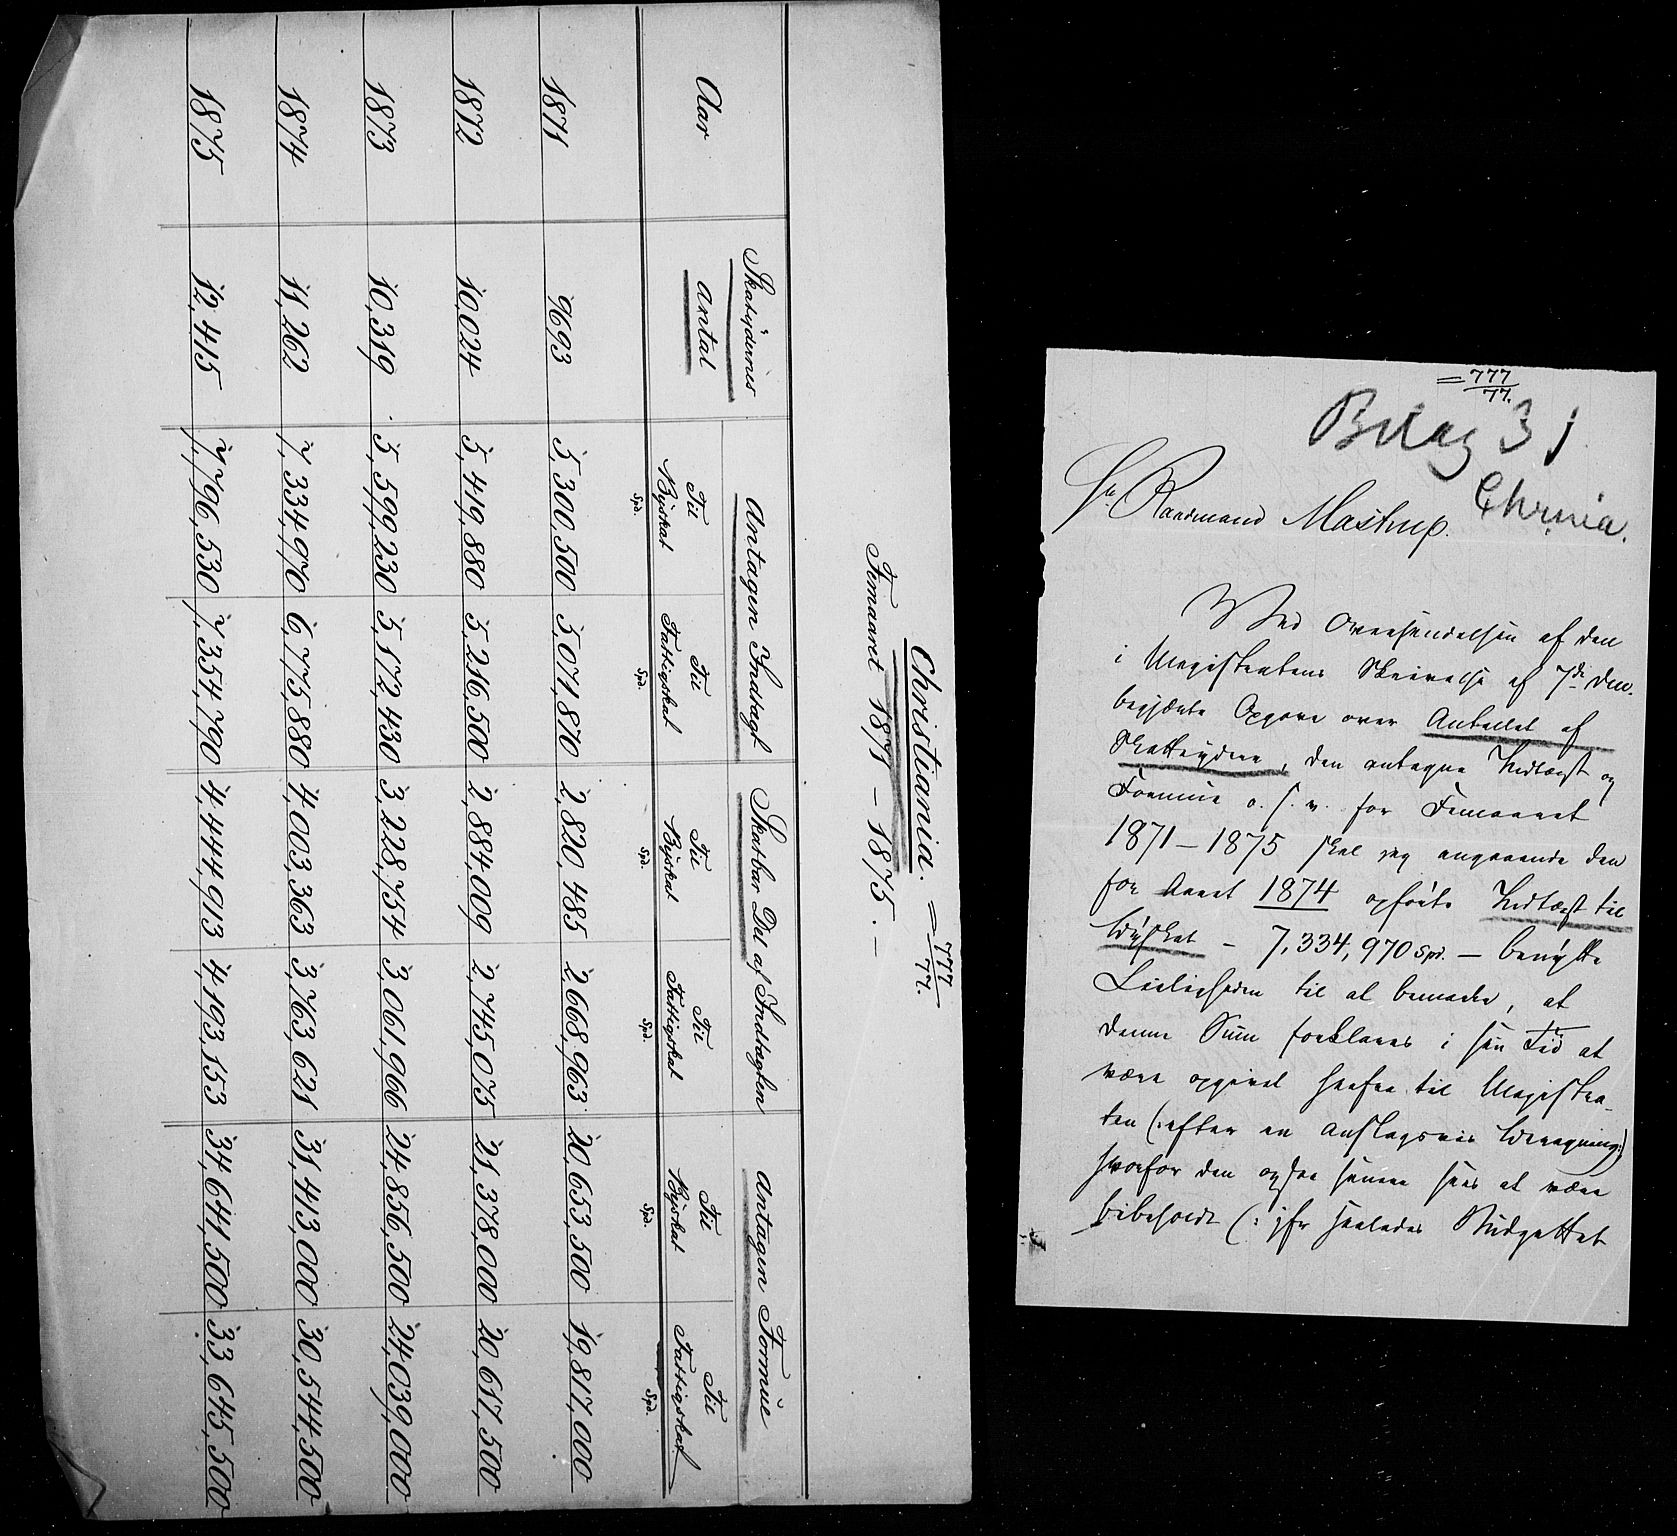 Christiania. = 777/77.
Femaaret 1871 – 1875. –
Aar | Skatydernes Antal | Antagen Indtægt | Skatbar Del af Indtægten | Antagen Formue
Til Byskat Spd. | Til Fattigskat Spd. | Til Byskat Spd. | Til Fattigskat Spd. | Til Byskat Spd. | Til Fattigskat Spd.
1871 | 9693 | 5,300,500 | 5,071,870 | 2,820,485 | 2,668,963 | 20,653,500 | 19,817,000
1872 | 10,024 | 5,419,880 | 5,216,500 | 2,884,009 | 2,745,075 | 21,378,000 | 20,617,500
1873 | 10,319 | 5,599,230 | 5,172,430 | 3,228,754 | 3,061,966 | 24,856,500 | 24,039,000
1874 | 11,262 | 7,334,970 | 6,775,880 | 4,003,363 | 3,763,621 | 31,413,000 | 30,544,500
1875 | 12,415 | 7,796,530 | 7,354,790 | 4,444,913 | 4,193,153 | 34,641,500 | 33,645,500
= 777/77.
Bilag 3
Chrnia.
Hr. Raadmand Mastrup.
Ved Oversendelsen af den
i Magistratens Skrivelse af 7de dns.
begjærte Opgave over Antallet af
Skatteydere, den antagne Indtægt og
Formue o. s. v. for Femaaret
1871 – 1875 skal jeg angaaende den
for Aaret 1874 opførte Indtægt til
Byskat – 7,334,970 Spd. – benytte
Leiligheden til at bemærke, at
denne Sum forklares i sin Tid at
være opgivet herfra til Magistra-
ten (: efter en anslagsvis Beregning :)
hvorfor den ogsaa senere sees at være
bibeholdt (: jfr saaledes Budgettet